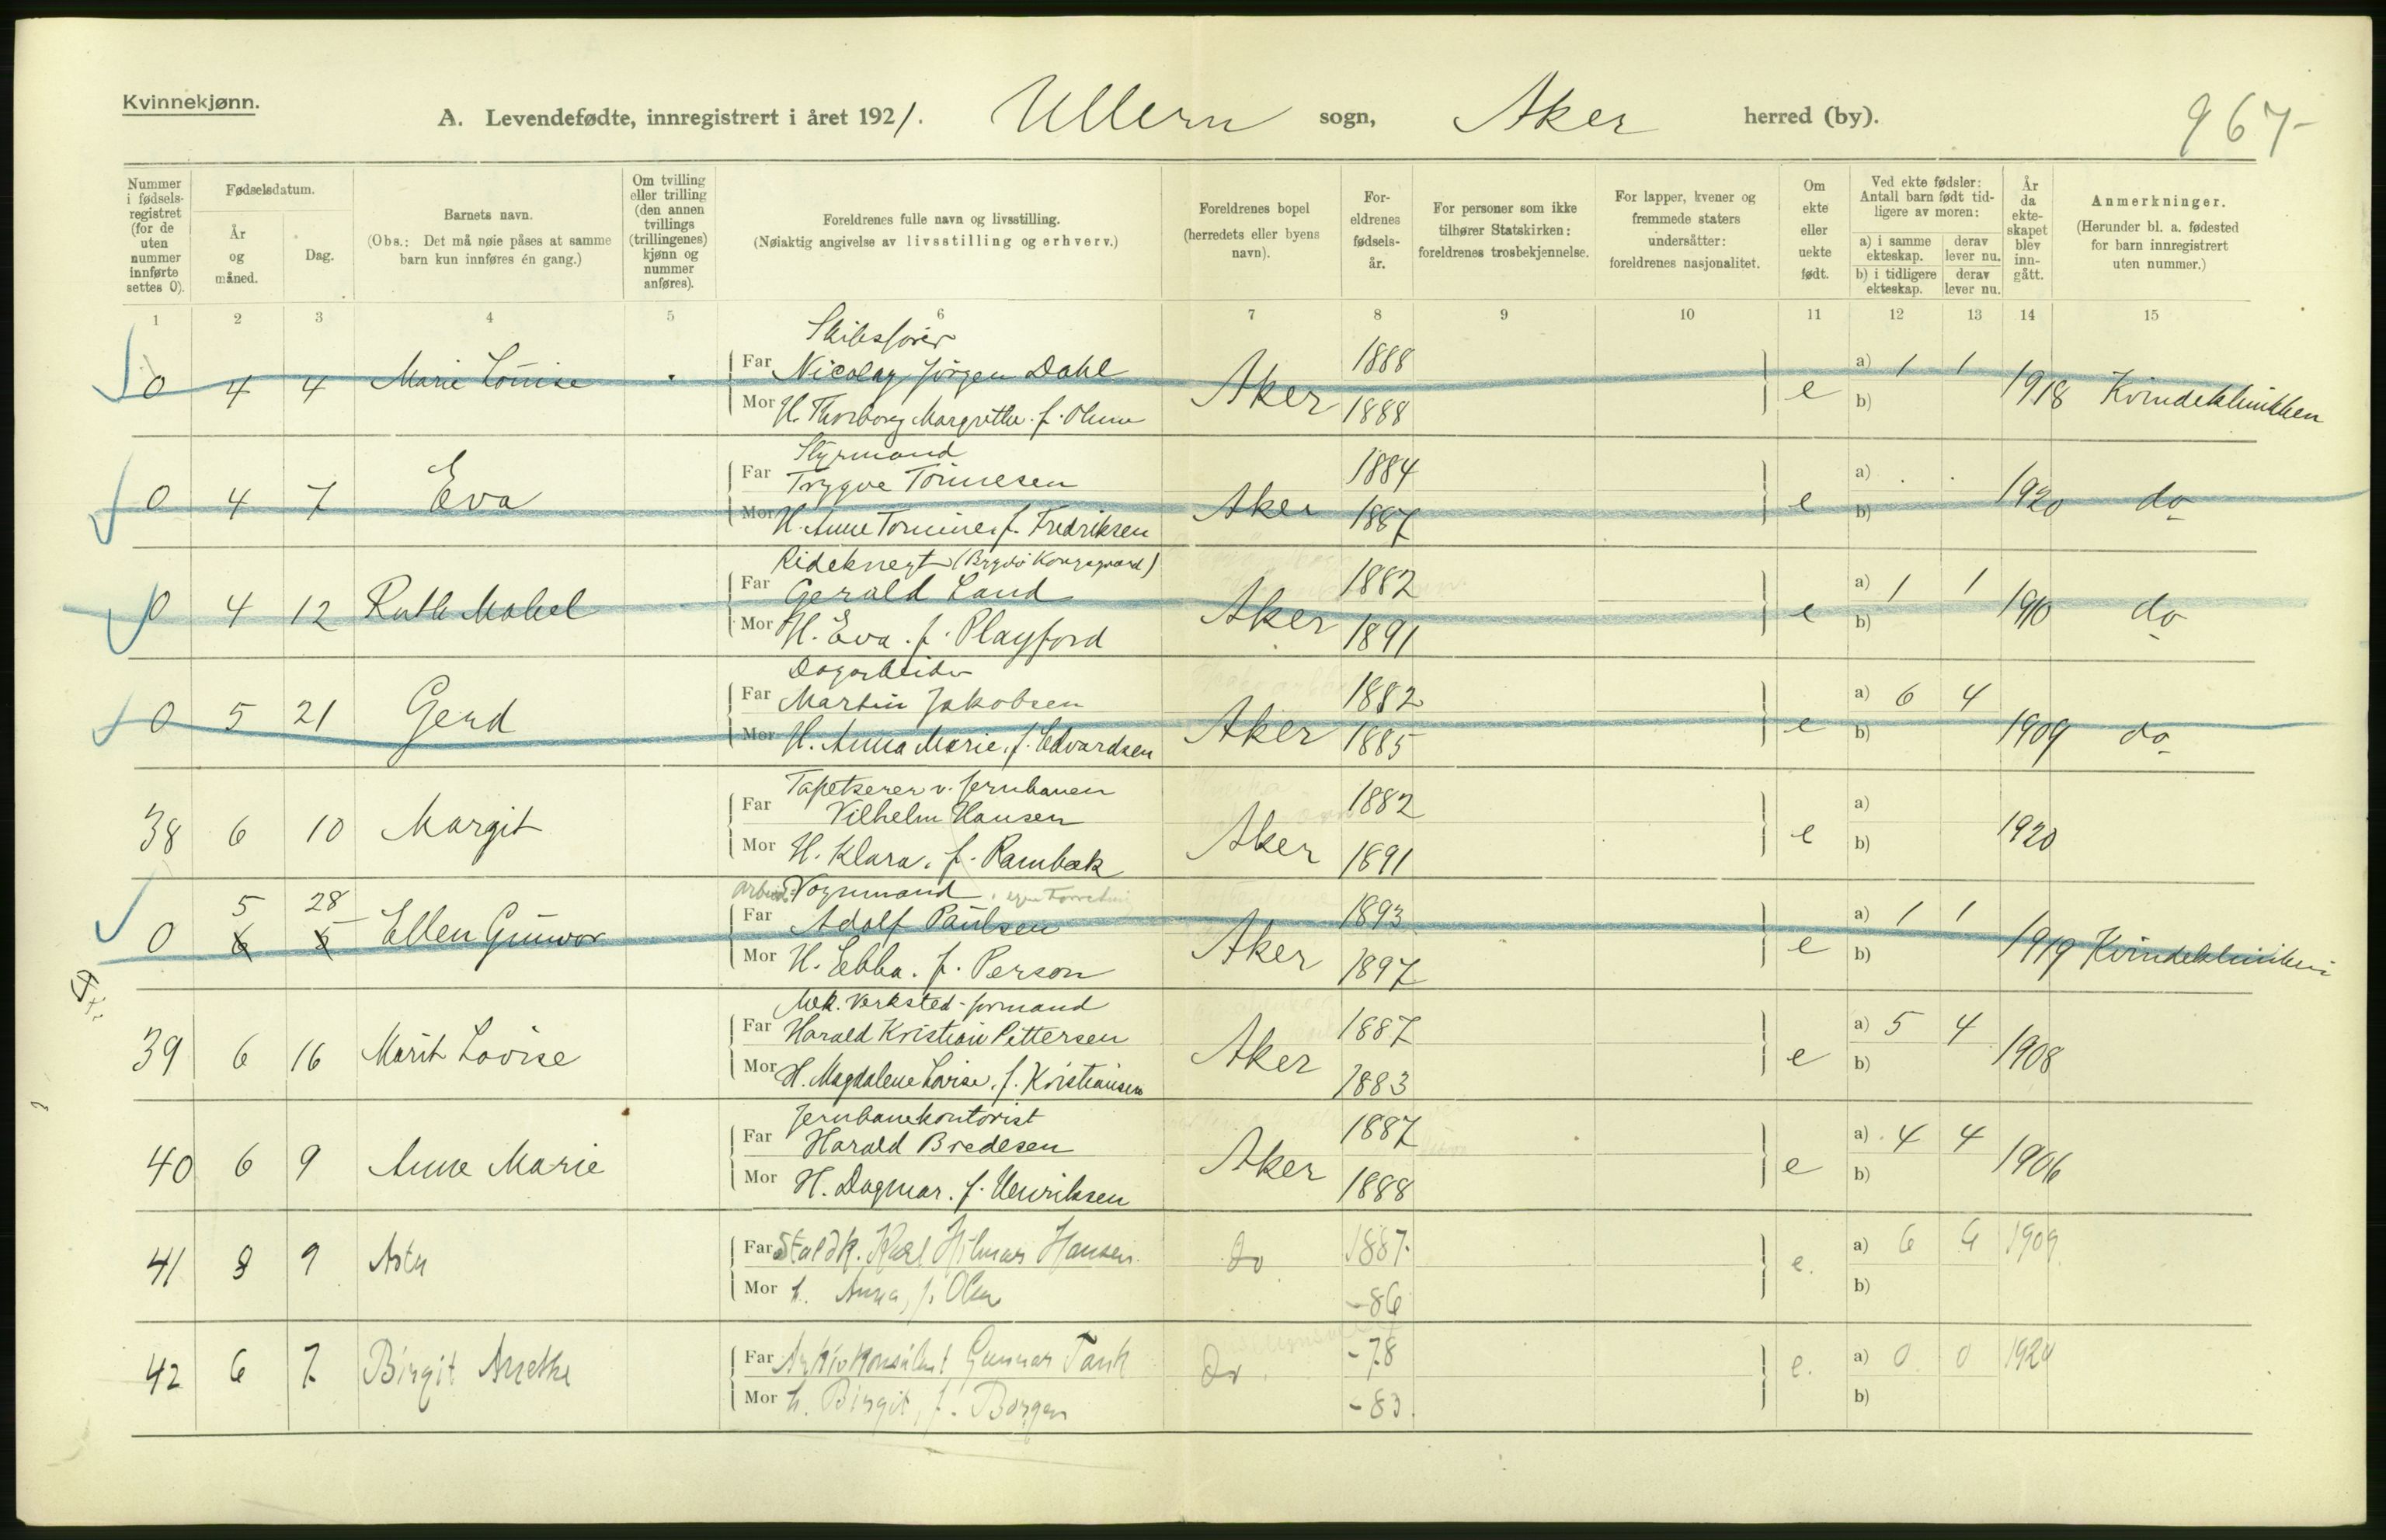 Kvinnekjønn.
A. Levendefødte, innregistrert i året 1921. Ullern sogn, Aker herred (by). 967
Nummer i fødselsregistret (for de uten nummer innførte settes 0).
Fødselsdatum.
År og måned.
Dag.
Barnets navn.
(Obs.: Det må nøie påses at samme barn kun innføres én gang.)
Om tvilling eller trilling (den annen tvillings (trillingenes) kjønn og nummer anføres).
Foreldrenes fulle navn og livsstilling.
(Nøiaktig angivelse av livsstilling og erhverv.)
Foreldrenes bopel (herredets eller byens navn).
Foreldrenes fødselsår.
For personer som ikke tilhører Statskirken: foreldrenes trosbekjennelse.
For lapper, kvener og fremmede staters undersåtter: foreldrenes nasjonalitet.
Om ekte eller uekte født.
Ved ekte fødsler: Antall barn født tidligere av moren:
a) i samme ekteskap. derav lever nu.
b) i tidligere ekteskap. derav lever nu.
År da ekteskapet blev inngått.
Anmerkninger.
(Herunder bl. a. fødested for barn innregistrert uten nummer.)
1 2 3 4 5 6 7 8 9 10 11 12 13 14 15
Skibsfører
0 4 4 Marie Louise Far Nicolay Jørgen Dahl Aker 1888 e a) 1 1 1918 Kvindeklinikken
Mor H. Thorborg Margrethe f. 1888 b)
Styrmand
0 4 7 Eva Far Trygve Tønnesen Aker 1884 e a) 1920 do
Mor H. Anne f. Fredriksen 1887 b)
Rideknegt (Bygdø Kongsgaard)
0 4 12 Ruth Mabel Far Gerald Land Aker 1882 e a) 1 1 1910 do
Mor H. Eva. f. Playford 1891 b)
Dagarbeider
0 5 21 Gerd Far Martin Jakobsen Aker 1882 e a) 6 4 1909 do
Mor H. Anna Marie. f. Edvardsen 1885 b)
Tapetserer v. Jernbanen
38 6 10 Margit Far Vilhelm Hansen Aker 1882 e a) 1920
Mor H. Klara. f. Rambæk 1891 b)
5 28 Vognmand, egen Forretning
0 6 5 Ellen Gunvor Far Adolf Paulsen Aker 1893 e a) 1 1 1919 Kvindeklinikken
Mor H. Ebba. f. Person 1897 b)
Mek. Verksted-formand
39 6 16 Marit Lovise Far Harald Kristian Pettersen Aker 1887 e a) 5 4 1908
Mor H. Magdalene Lovise. f. Kristiansen 1883 b)
Jernbanekontorist
40 6 9 Anne Marie Far Harald Bredesen Aker 1887 e a) 4 4 1906
Mor H. Dagmar. f. Henriksen 1888 b)
41 8 9 Asta Far Staldk. Karl Hilmar Hansen do 1887 e. a) 6 6 1909
Mor h. Anna, f. Olsen -86 b)
42 6 7 Birgit Anethe Far Arkivkonsulent Gunnar Tank do -78 e. a) 0 0 1920
Mor h. Birgit, f. Borgen -83. b)